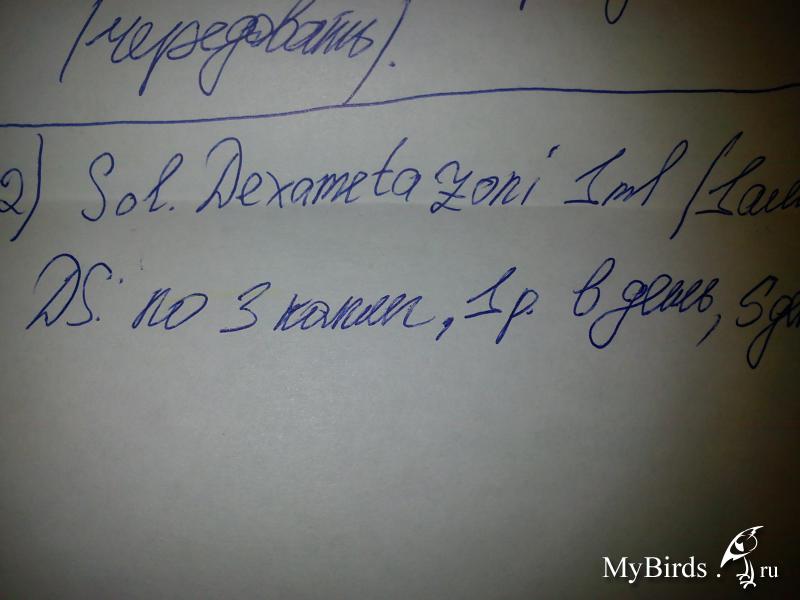 (чередовать).
2) Sol. Dexametazoni 1ml (1ам
DS: по 3 капли, 1р. в день, 5 дн
MyBirds.ru